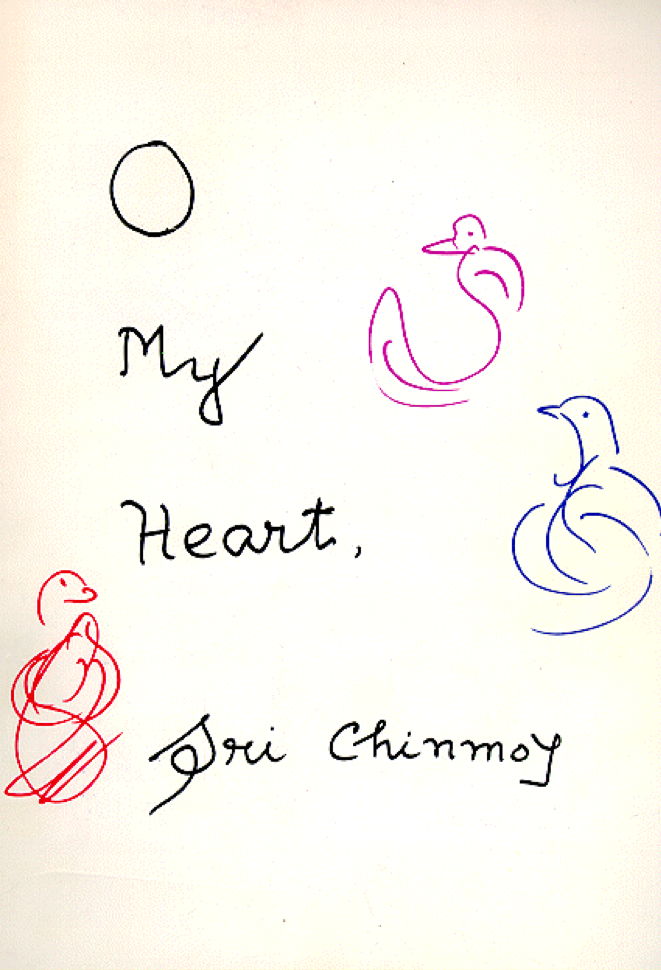 O
My
Heart,
Sri Chinmoy